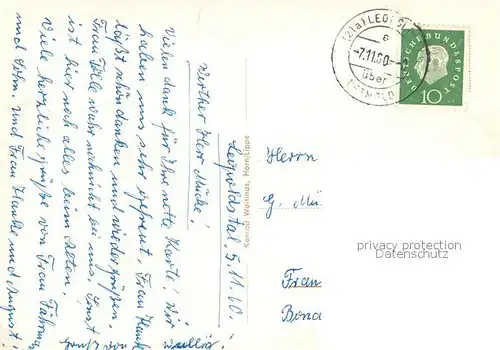 Leopoldstal, 5.11.60.
Werther Herr Mücke!
Vielen Dank für Ihre nette Karte! Wir
haben uns sehr gefreut, Frau Hanke
läßt schön danken und wiedergrüßen.
Frau Tölle wohnt bei uns. Sonst
ist hier noch alles beim Alten.
Viele herzliche Grüße von Frau
und Sohn. und Frau Hanke und August,
Gruß von
Konrad Wortmos, Horn/Lippe
(21a) LEOPOL
e
-7.11.60.-
über
DETMOLD
DEUTSCHE BUNDESPOST
10
Herrn
G. Mü
Fran
Bona
privacy protection
Datenschutz